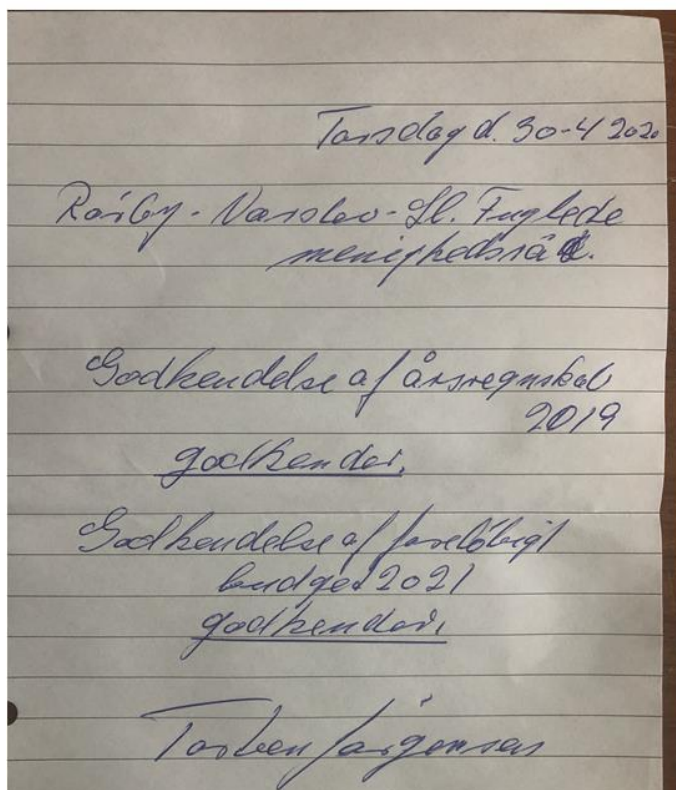 Torsdag d. 30-4 2020
Råsby - Værslev - Ll. Fuglede
menighedsråd.
Godkendelse af årsregnskab
2019
godkender.
Godkendelse af foreløbigt
budget 2021
godkender.
Torben Jørgensen